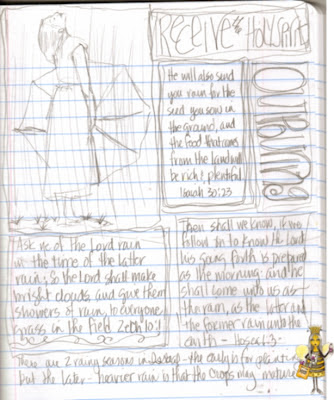 RECEIVE the Holy Spirit
OUTPOURING
He will also send
you rain for the
seed you sow in
the ground, and
the food that comes
from the land will
be rich & plentiful
Isaiah 30:23
Ask ye of the Lord rain
in the time of the latter
rain; So the Lord shall make
bright clouds, and give them
showers of rain, to everyone
grass in the field Zech 10:1
Then shall we know, if we
follow on to know the Lord
his going forth is prepared
as the morning: and he
shall come unto us as
the rain, as the latter and
the former rain unto the
earth - Hosea 6:3 -
There are 2 rainy seasons in - the early is for planting
but the later - heavier rain is that the crops may mature